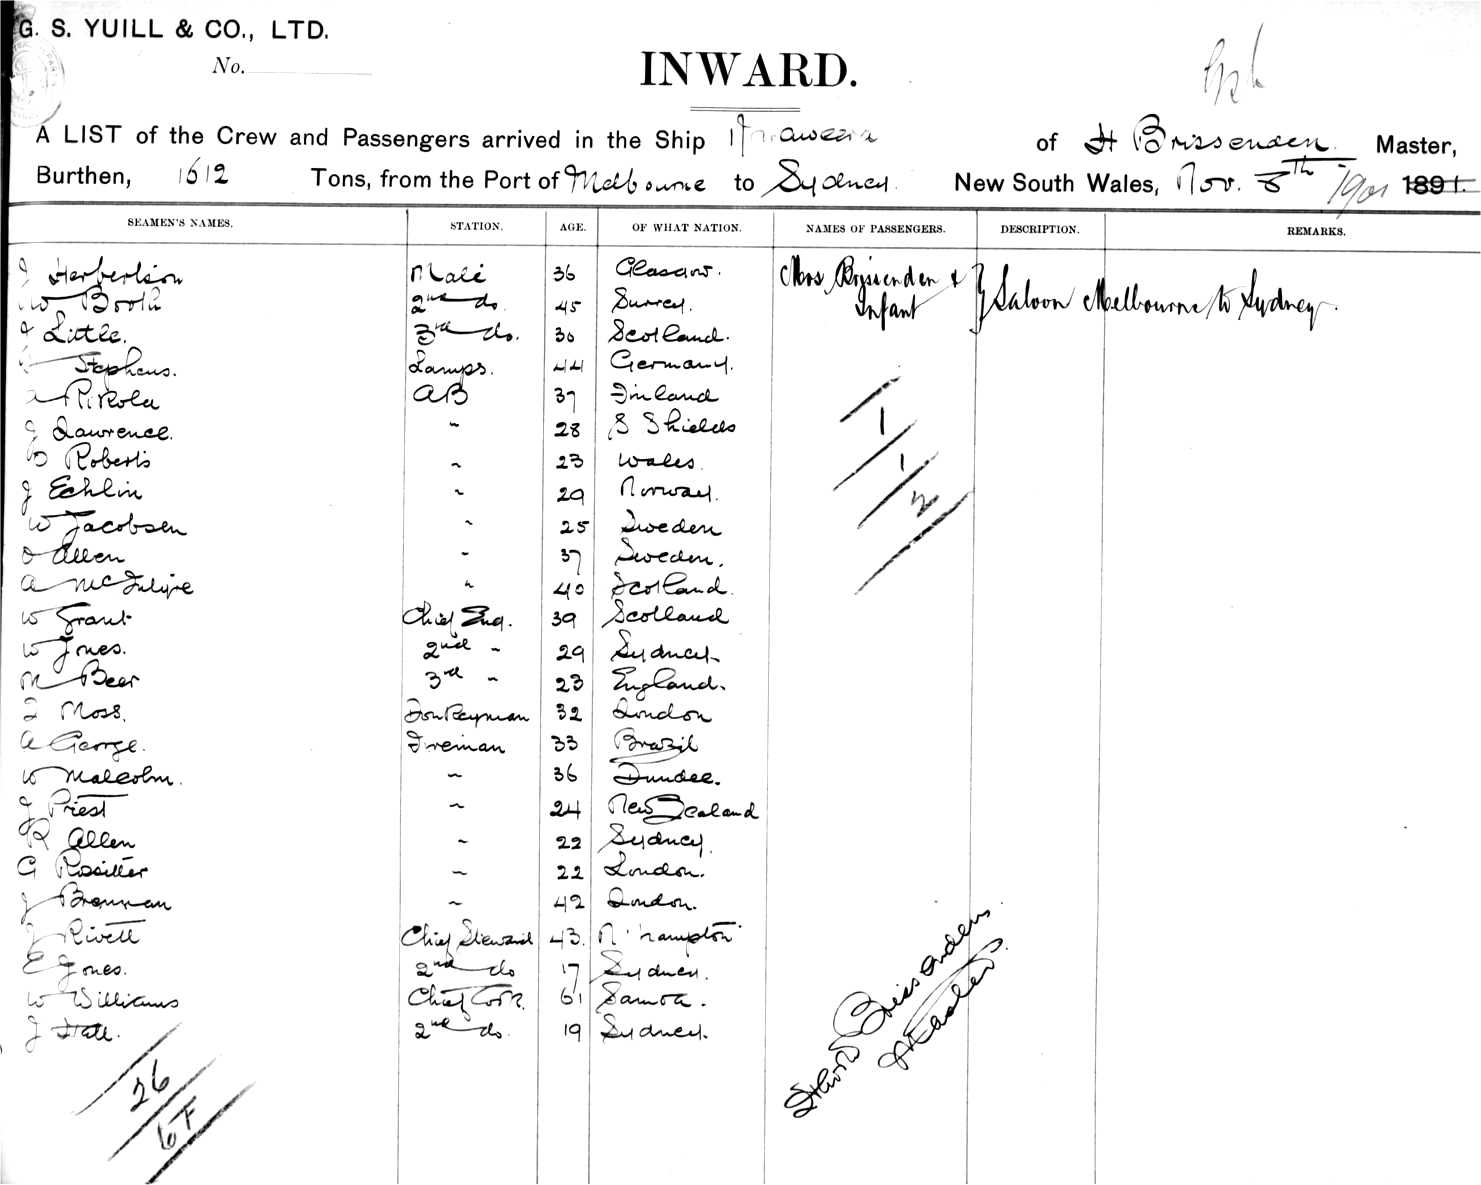 G. S. YUILL & CO., LTD.
No.
INWARD.
A LIST of the Crew and Passengers arrived in the Ship of H Brissenden Master,
Burthen, 1612 Tons, from the Port of Melbourne to Sydney New South Wales, Nov. 8th 1901 1891.
SEAMEN'S NAMES. STATION. AGE. OF WHAT NATION. NAMES OF PASSENGERS. DESCRIPTION. REMARKS.
J Herbertson Mate 36 Glasgow. Mrs Brissenden &
Infant } Saloon Melbourne to Sydney.
W Booth 2nd do. 45 Surrey.
J Little. 3rd do. 30 Scotland.
Stephens. Lamps. 44 Germany.
Rikola AB 37 Finland
J Lawrence. " 28 S Shields
Roberts " 23 Wales.
J Echlin " 29 Norway.
W Jacobsen " 25 Sweden
Allen " 37 Sweden.
A McIntyre " 40 Scotland.
W Grant Chief Eng. 39 Scotland
W Jones. 2nd " 29 Sydney
M Beer 3rd " 23 England.
Moss. Donkeyman 32 London
A George. Fireman 33 Brazil
W Malcolm. " 36 Dundee.
J Priest " 24 New Zealand
R Allen " 22 Sydney.
G Rositter " 22 London.
J Brennan " 42 London.
J Rivett Chief Steward 43. N'hampton
E Jones. 2nd do 17 Sydney.
W Williams Chief Cook. 61 Samoa.
J Hall. 2nd do. 19 Sydney.
1
1
2
26
6F
Brissenden
Master